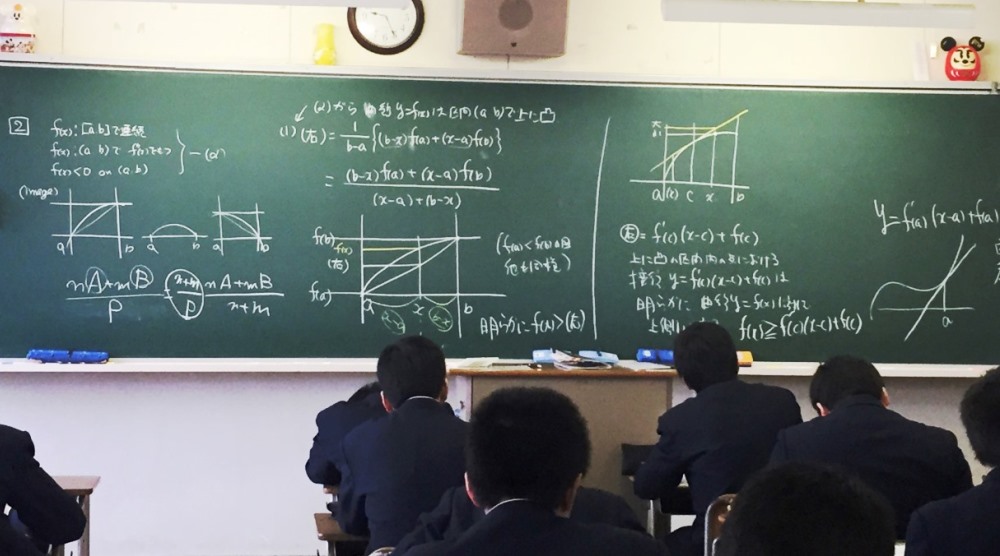 2
f(x): [a b]で連続
f(x): (a b)で
f(x)<0 on (a, b)
(Image)
a b a b a b
nA+mB / P
n+m / P
nA+mB / n+m
(α)から y=f(x)は区間(a b)で上に凸
(1) (右)= 1/b-a {(b-x)f(a)+(x-a)f(b)}
= (b-x)f(a)+(x-a)f(b) / (x-a)+(b-x)
f(b)
f(x)
(右)
f(a)
a x b
(f(a)<f(b)
他も同様)
明らかに f(x)>(右)
a c x b
(右)= f'(c)(x-c)+f(c)
接線 y=f'(c)(x-c)+f(c)は
明らかに y=f(x)
上側 f(x)≧f'(c)(x-c)+f(c)
y=f'(a)(x-a)+f(a)
a